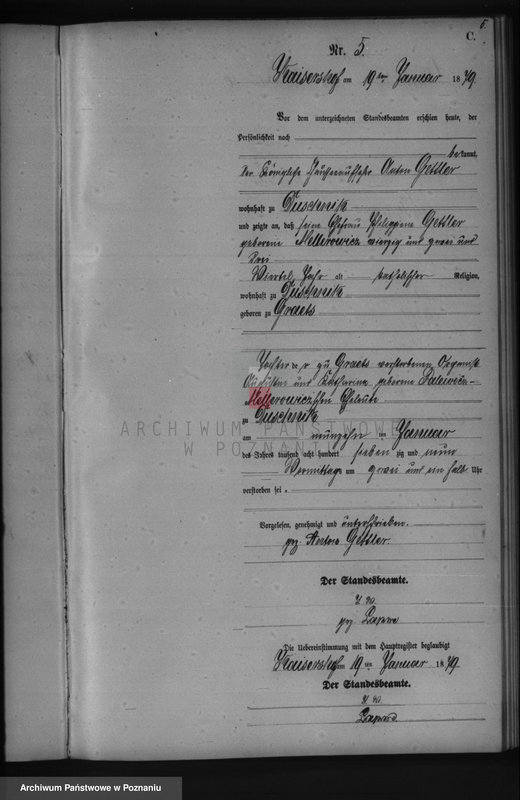 5.
C.
Nr. 5.
Kaisershof am 19ten Januar 1879.
Vor dem unterzeichneten Standesbeamten erschien heute, der
Persönlichkeit nach
bekannt,
der Königliche Anton Gettler
wohnhaft zu Duschnik
und zeigte an, daß seine Ehefrau Philippine Gettler
geborene Mellerowicz vierzig und zwei und
drei
Viertel Jahr alt katholischer Religion,
wohnhaft zu Duschnik
geboren zu Graetz
Tochter der zu Graetz verstorbenen Organist
Augustin und Katharina, geborene
Mellerowiczschen Eheleute
zu Duschnik
am neunzehn ten Januar
des Jahres tausend acht hundert sieben zig und neun
Vormittags um zwei und ein halb Uhr
verstorben sei.
Vorgelesen, genehmigt und unterschrieben.
gez. Anton Gettler.
Der Standesbeamte.
gez.
Die Uebereinstimmung mit dem Hauptregister beglaubigt
Kaisershof am 19ten Januar 1879.
Der Standesbeamte.
ARCHIWUM PAŃSTWOWE
W POZNANIU
Archiwum Państwowe w Poznaniu